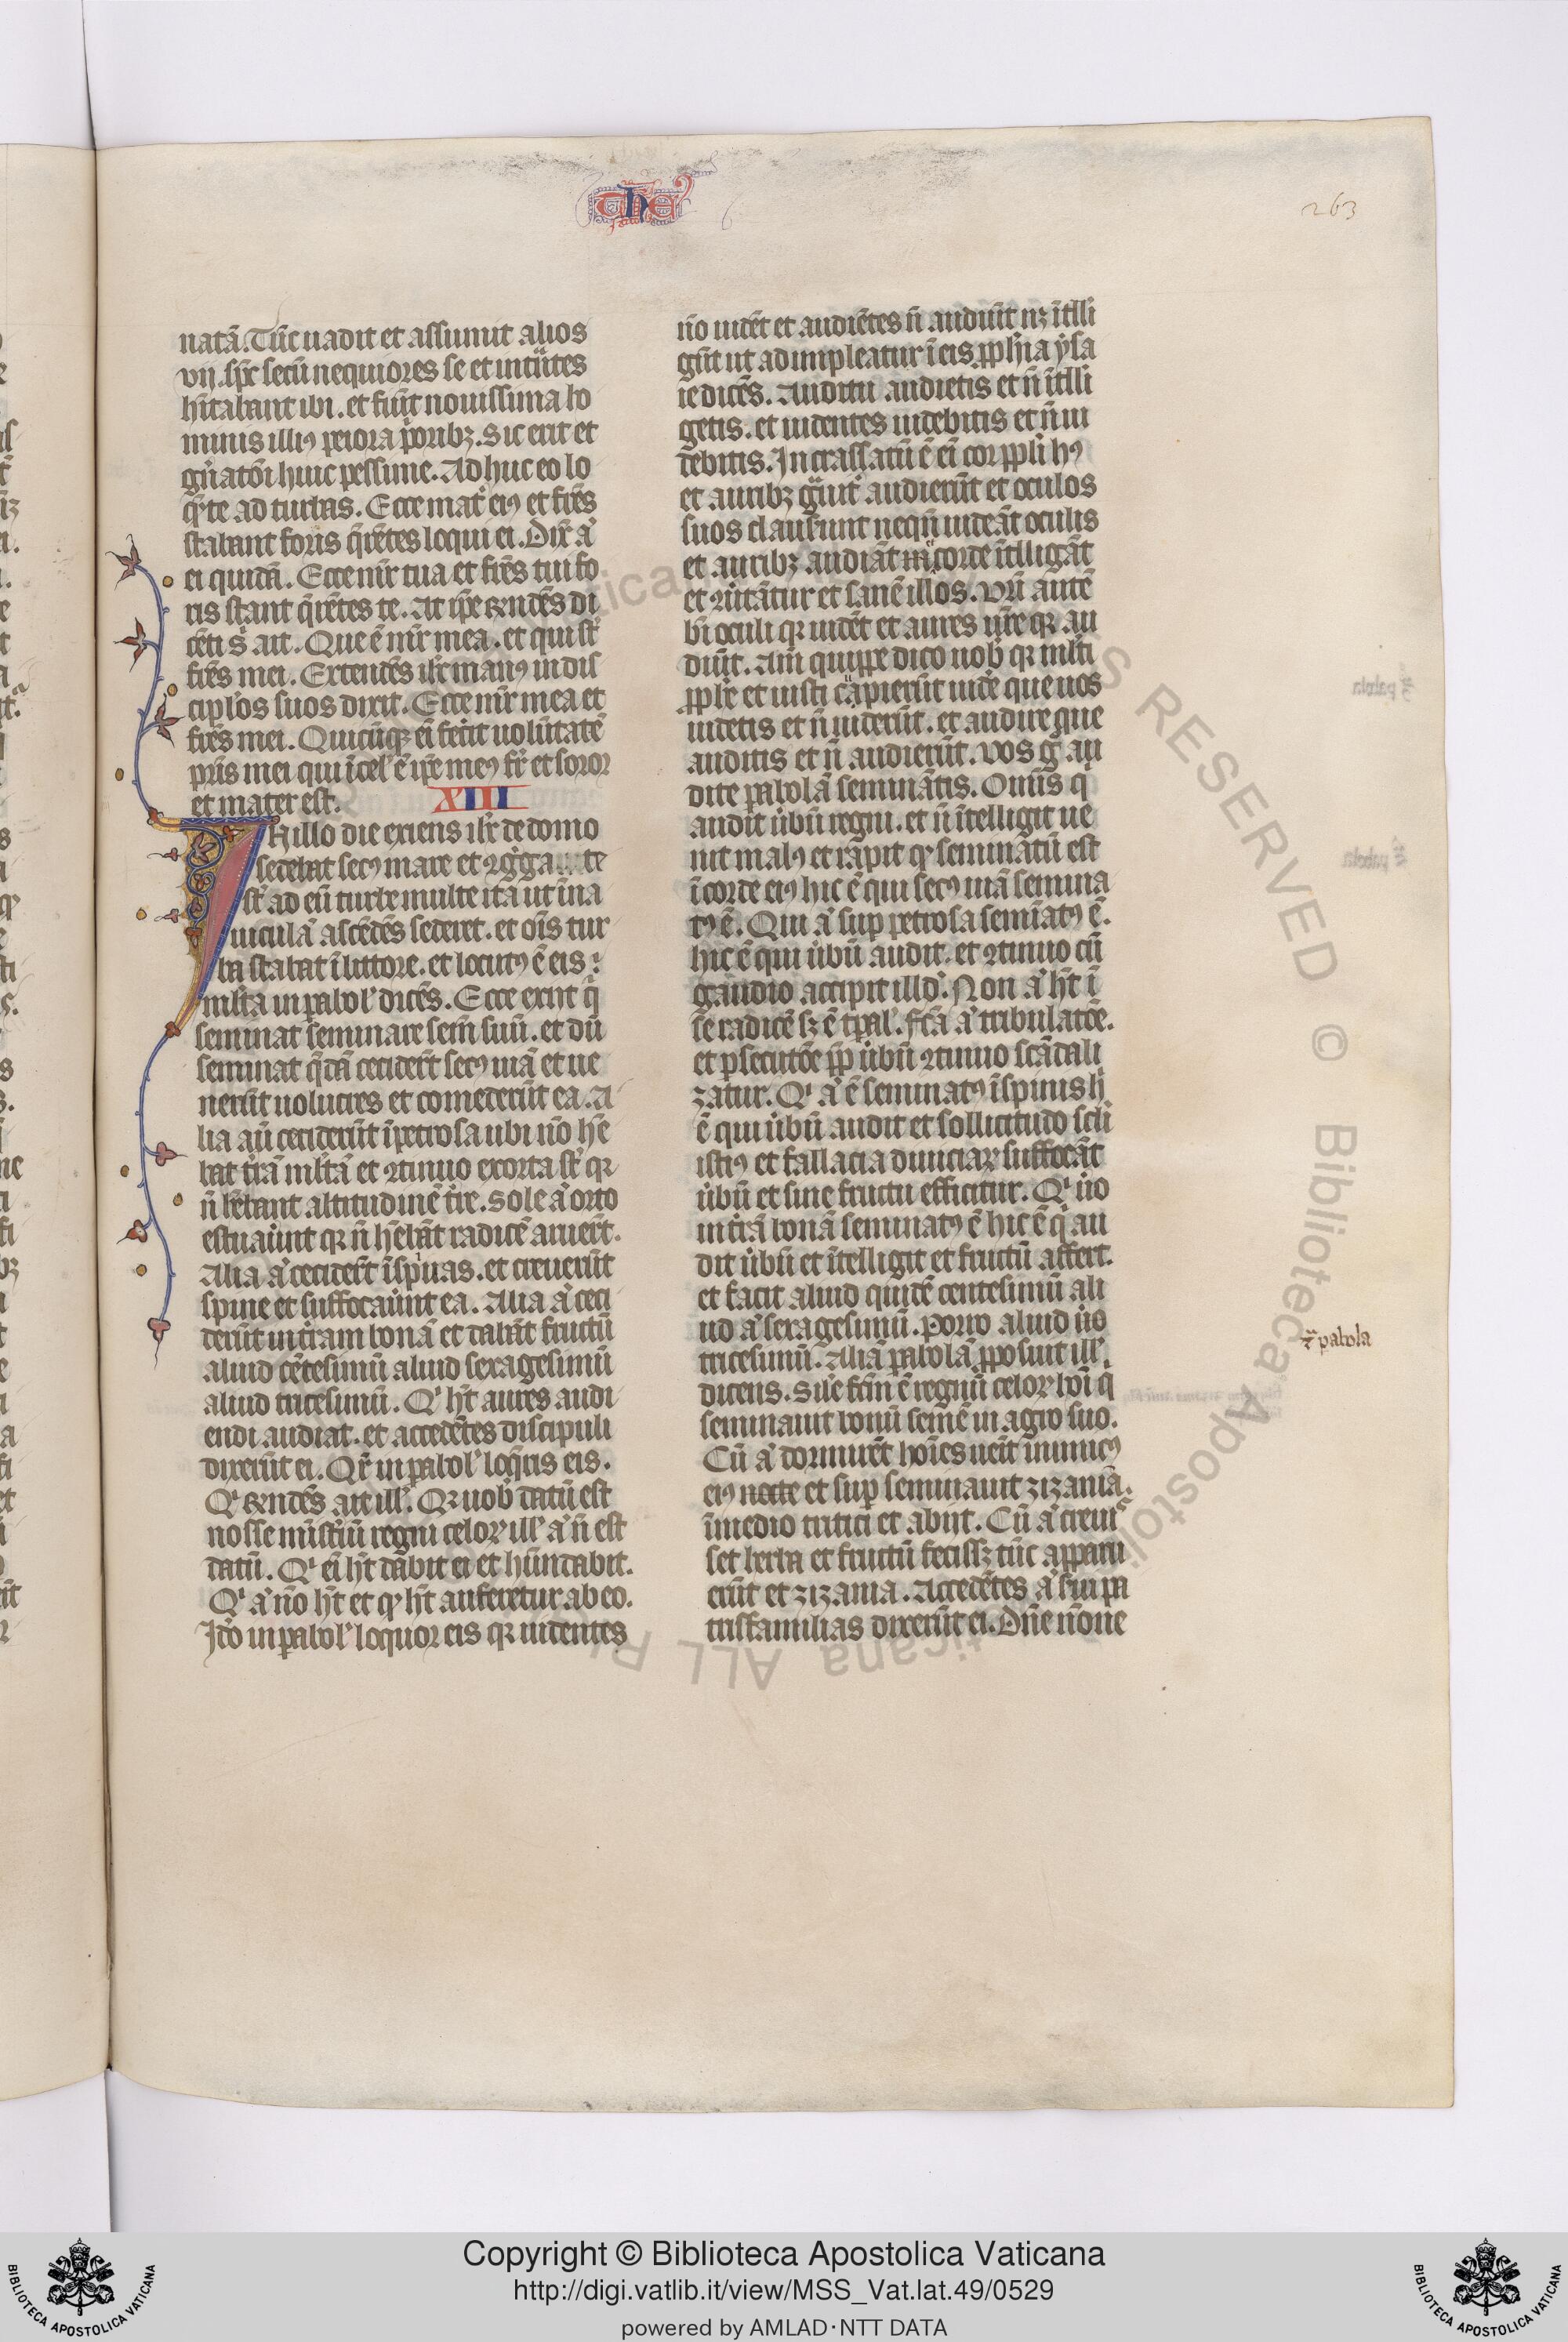 the
263
natā. Tūc uadit et assumit alios
vij. sp̄c secū nequiores se et int̄ntes
hītabant ibi. et fiūt nouissima ho
minis illi⁹ peiora p̄oribꝫ. Sic erit et
gn̄atōi huic pessime. Ad huc eo lo
q̄nte ad turbas. Ecce mat̄ ei⁹ et fr̄es
stabant foris q̄rētes loqui ei. Dix̄ a͛
ei quidā. Ecce mr̄ tua et fr̄es tui fo
ris stant q̄rētes te. At ip̄e rn̄dēs di
cēti s͛ ait. Que ē mr̄ mea. et qui st̄
fr̄es mei. Extendēs ih̄c man⁹ in dis
cip̄los suos dixit. Ecce mr̄ mea et
fr̄es mei. Quicūqꝫ ei͛ fecit uolūtatē
pr̄is mei qui ī cel͛ ē ip̄e me⁹ fr̄ et soror
et mater est. XIII
N illo die exiens ih̄c de domo
sedebat sec⁹ mare et ꝯg͛ga te
st̄ ad eū turbe multe ita ut ī na
uiculā ascēdēs sederet. et oīs tur
ba stabat ī littore. et locut⁹ ē eis
ml̄ta in ꝑabol͛ dicēs. Ecce exiit q̄
seminat seminare sem̄ suū. et dū
seminat q̄dā cecider̄t sec⁹ uiā et ue
nerūt uolucres et comederūt ea. A
lia aū ceciderūt ī petrosa ubi nō hē
bat t̄rā ml̄tā et ꝯtinuo exorta st̄ qꝛ
n̄ hēbant altitudinē t̄re. Sole a͛ orto
estuauūt qꝛ n̄ hēbāt radicē aruer̄t.
Alia a͛ cecider̄t ī spinas. et creuerūt
spine et suffocauūt ea. Alia a͛ ceci
derūt in t̄ram bonā et dabāt fructū
aliud cētesimū aliud sexagesimū
aliud tricesimū. Q͛ hт̄ aures audi
endi audiat. et accedētes discipuli
dixerūt ei. Qr̄ in ꝑabol͛ loq̄ris eis.
Q͛ rn̄dēs ait ill͛. Qꝛ uob̄ datū est
nosse mist̄iū regni celoꝝ ill͛ a͛ n̄ est
datū. Q͛ ei͛ ht̄ dabit̄ ei et hūndabit.
Q͛ a͛ nō ht̄ et qᵈ ht̄ auferetur ab eo.
Iō in ꝑabol͛ loquor eis qꝛ uidentes
nō uidēt et audiētes n̄ audiūt nꝫ ītlli
gūt ut adimpleatur ī eis ꝓph̄ia ysa
ie dicēs. Auditu audietis et n̄ ītlli
getis. et uidentes uidebitis et n̄ ui
debitis. Incrassatū ē ei͛ cor ppl̄i h⁹
et auribꝫ g͛uit̄ audierūt et oculos
suos clauserunt neqn̄ uideāt oculis
et auribꝫ audiāt corde ītlligāt
et ꝯuertātur et sanē illos. Vr̄i autē
bī oculi qꝛ uidēt et aures ur̄e qꝛ au
diūt. Am̄ quippe dico uob̄ qꝛ ml̄ti
ꝓph̄e et iusti cupierūt uide͛ que uos
uidetis et n̄ uiderūt. et audire que
auditis et n̄ audierūt. Vos g͛ au
dite ꝑabolā seminātis. Omīs q
audit ūbū regni. et n̄ ītelligit ue
nit mal⁹ et rapit qᵈ seminatū est
ī corde ei⁹ hic ē qui sec⁹ uiā semina
t⁹ ē. Qui a͛ sup petrosa seminat⁹ ē.
hic ē qui ūbū audit. et ꝯtinuo cū
gaudio accipit illd̄. Non a͛ ht̄ ī
se radicē sꝫ ē tp̄al͛. Fc̄a a͛ tribulatōe.
et ꝑsecutōe ꝓp̄ ūbū ꝯtinuo scādali
zatur. Q͛ a͛ ē seminat⁹ ī spinis h͛
ē qui ūbū audit et sollicitudo scl̄i
isti⁹ et fallacia diuiciaꝝ suffocāt
ūbū et sine fructu efficitur. Q͛ ūo
in t̄rā bonā seminat⁹ ē hic ē q̄ au
dit ūbū et ītelligit et fructū affert.
et facit aliud quidē centesimū ali
ud a͛ sexagesimū. Porro aliud ūo
tricesimū. Aliā ꝑabolā ꝓposuit ill͛
dicens. Sil̄e fc̄m ē regnū celoꝝ hoī q̄
seminauit bonū semē in agro suo.
Cū a͛ dormirēt hoīes uēit inimic⁹
ei⁹ nocte et sup seminauit zizania.
ī medio tritici et abijt. Cū a͛ creuis
set herba et fructū fecissꝫ tūc apparu
erūt et zizania. Accedētes a͛ sui pa
trisfamilias dixerūt ei. Dn̄e nōne
ꝑabola
Copyright © Biblioteca Apostolica Vaticana
http://digi.vatlib.it/view/MSS_Vat.lat.49/0529
powered by AMLAD·NTT DATA
BIBLIOTECA APOSTOLICA VATICANA
BIBLIOTECA APOSTOLICA VATICANA